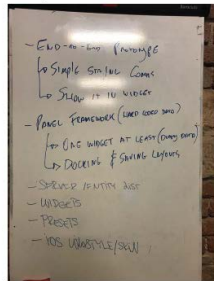 - END-TO-END PROTOTYPE
↳ SIMPLE STRING COMMS
↳ SHOW IT IN WIDGET
- PANEL FRAMEWORK (HARD CODED DATA)
↳ ONE WIDGET AT LEAST (DUMMY DATA)
↳ DOCKING & SAVING LAYOUTS
- SERVER IDENTITY
- WIDGETS
- PRESETS
- IOS